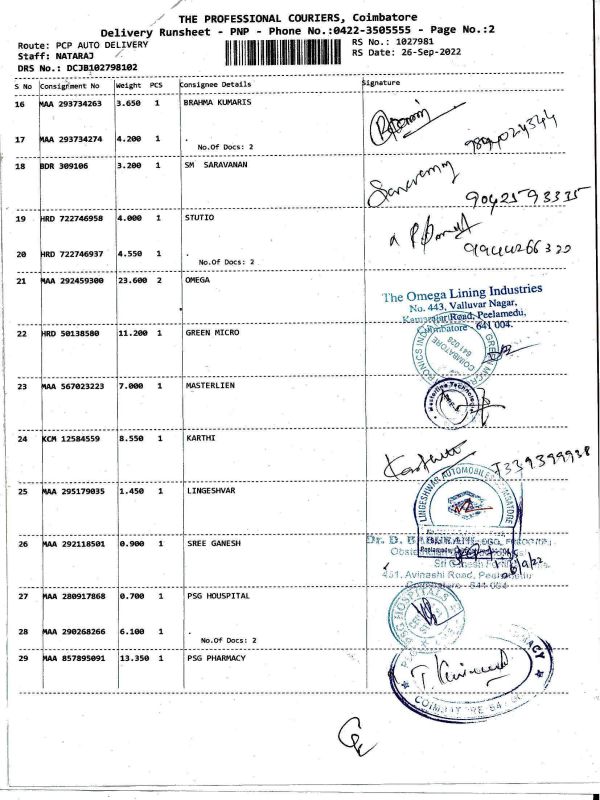 THE PROFESSIONAL COURIERS, Coimbatore
Delivery Runsheet - PNP - Phone No.:0422-3505555 - Page No.:2
Route: PCP AUTO DELIVERY
RS No.: 1027981
Staff: NATARAJ
RS Date: 26-Sep-2022
DRS No.: DCJB102798102
S No Consignment No Weight PCS Consignee Details Signature
16 MAA 293734263 3.650 1 BRAHMA KUMARIS
17 MAA 293734274 4.200 1 .
No.Of Docs: 2
9894024344
18 BDR 309106 3.200 1 SM SARAVANAN
Saravanan
9042593335
19 HRD 722746958 4.000 1 STUTIO
20 HRD 722746937 4.550 1 .
No.Of Docs: 2
9944266322
21 MAA 292459300 23.600 2 OMEGA
The Omega Lining Industries
No. 443, Valluvar Nagar,
Kamarajar Road, Peelamedu,
Coimbatore - 641 004.
22 HRD 50138580 11.200 1 GREEN MICRO
COIMBATORE
641 028
23 MAA 567023223 7.000 1 MASTERLIEN
Masterline Technologies
24 KCM 12584559 8.550 1 KARTHI
7339399938
25 MAA 295179035 1.450 1 LINGESHVAR
LINGESHWAR AUTOMOBILES COIMBATORE
26 MAA 292118501 0.900 1 SREE GANESH
451, Avinashi Road, Peelamedu
27 MAA 280917868 0.700 1 PSG HOUSPITAL
PSG HOSPITALS
28 MAA 290268266 6.100 1 .
No.Of Docs: 2
29 MAA 857895091 13.350 1 PSG PHARMACY